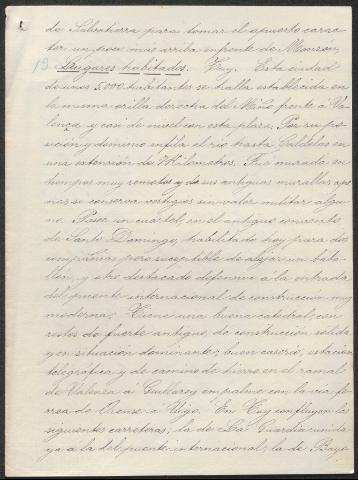 de Salvatierra para tomar el opuesto carac-
ter un poco mas arriba enfrente de Monzón.
13 Lugares habitados. Tuy. Esta ciudad
de unos 5.000 habitantes se halla establecida en
la misma orilla derecha del Miño frente á Va-
lença y casi de nivel con esta plaza. Por su po-
sición y dominio enfila el río hasta Caldelas en
una extensión de 7 Kilometros. Fué murada en
tiempos muy remotos y de sus antiguas murallas ape-
nas se conserva vestigios sin valor militar algu-
no. Posee un cuartel, en el antiguo convento
de Santo Domingo, habilitado hoy para dos
compañias pero susceptible de alojar un bata-
llón, y otro destacado defensivo á la entrada
del puente internacional de construcción muy
moderna; Tiene una buena catedral, con
restos de fuerte antiguo, de construcción sólida
y en situación dominante; buen caserio, estación
telegráfica y de camino de hierro en el ramal
de Valenza á Guillarey empalme con la via fe-
rrea de Orense á Vigo. En Tuy confluyen las
siguientes carreteras; la de La Guardia unida
ya á la del puente internacional; la de Bayo-